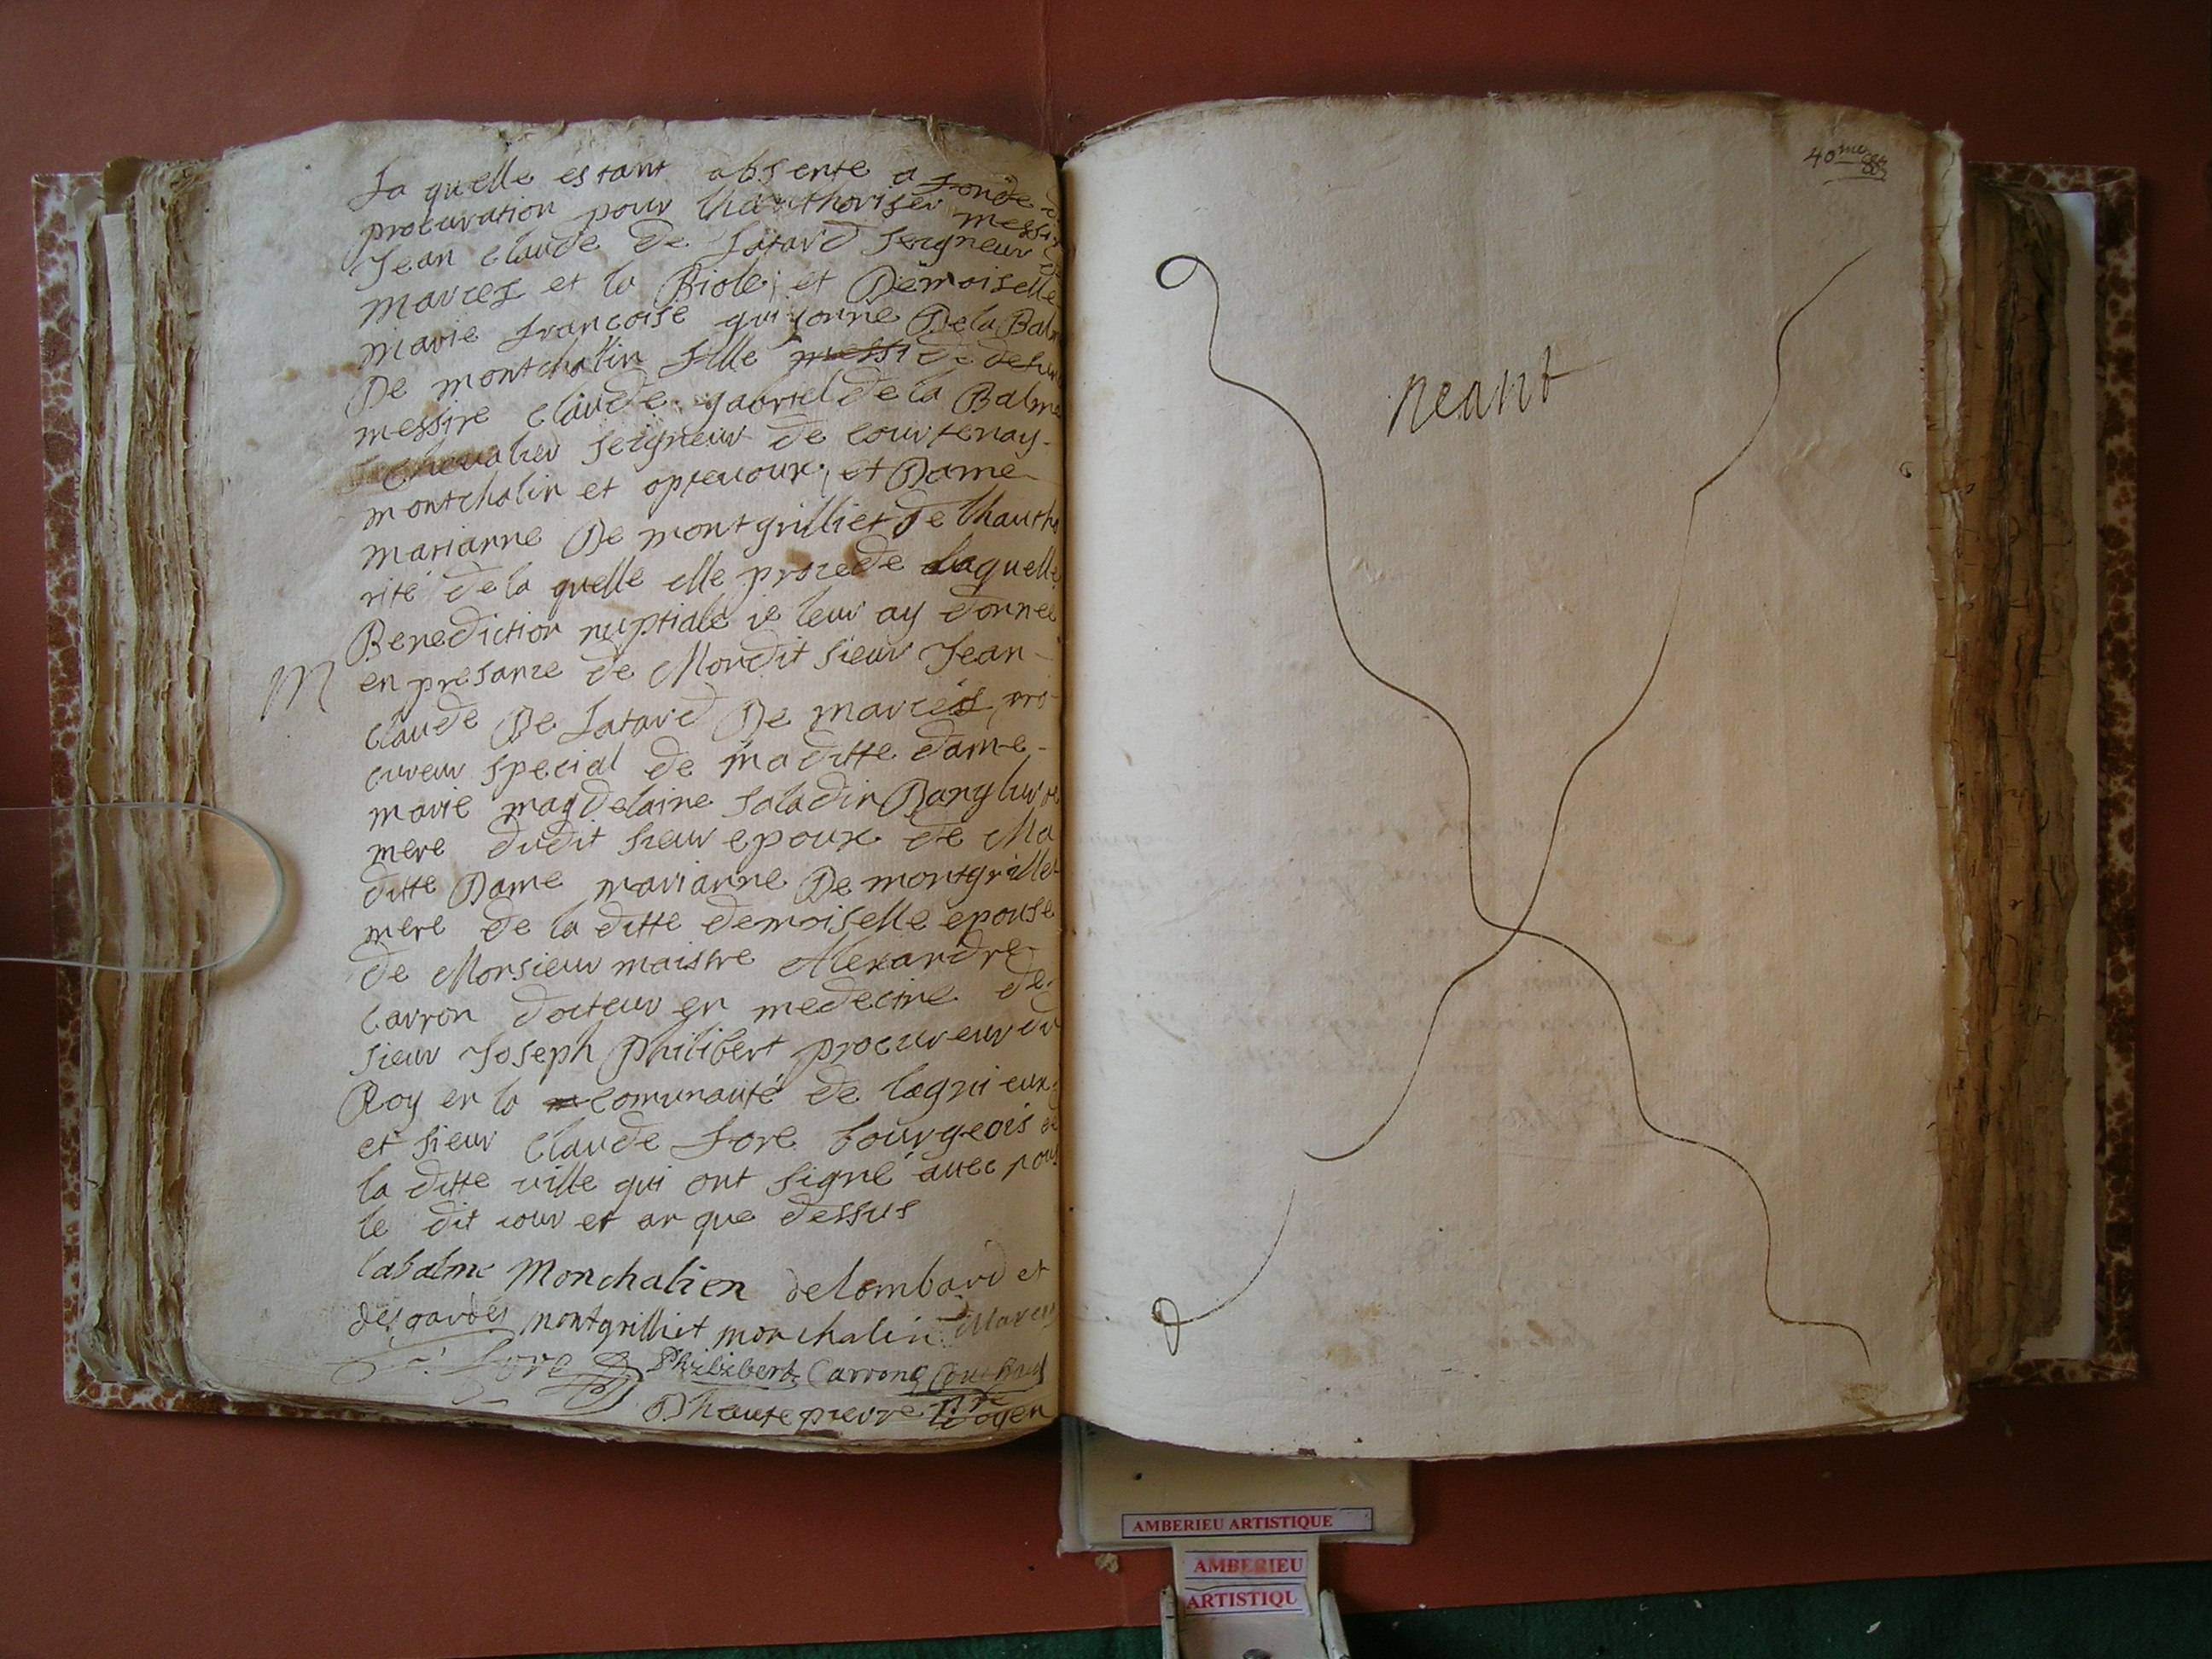 La quelle estant absente a fondé
procuration pour lhauthoriser messi
Jean claude de Latard seigneur
marces et la Biole, et Demoiselle
marie francoise guigonne De la Balm
De montchalin fille messi de defun
messire claude gabriel de la Balme
Chevalier seigneur de courtenay
montchalin et opreuoux, et Dame
marianne De montgrilliet de lhautho
rité de la quelle elle procede laquelle
Benediction nuptiale ie leur ay donnée
M
en presance de Mondit sieur Jean
claude De Latard De marces pro
cureur special de maditte dame
marie magdelaine saladin
mere dudit sieur epoux de Ma
ditte Dame marianne De montgrillet
mere de la ditte demoiselle epouse
de Monsieur maistre Alexandre
Carron docteur en medecine de
sieur Joseph Philibert procureur du
Roy en la comunauté de lagnieux
et sieur Claude fore bourgeois de
la ditte ville qui ont signé avec nous
le dit iour et an que dessus
labalme Monchalien delombard et
desgardes montgrilliet monchalin Marces
fore Philibert Carron
Dhautepierre doyen
40me
neant
AMBERIEU ARTISTIQUE
AMBERIEU
ARTISTIQU